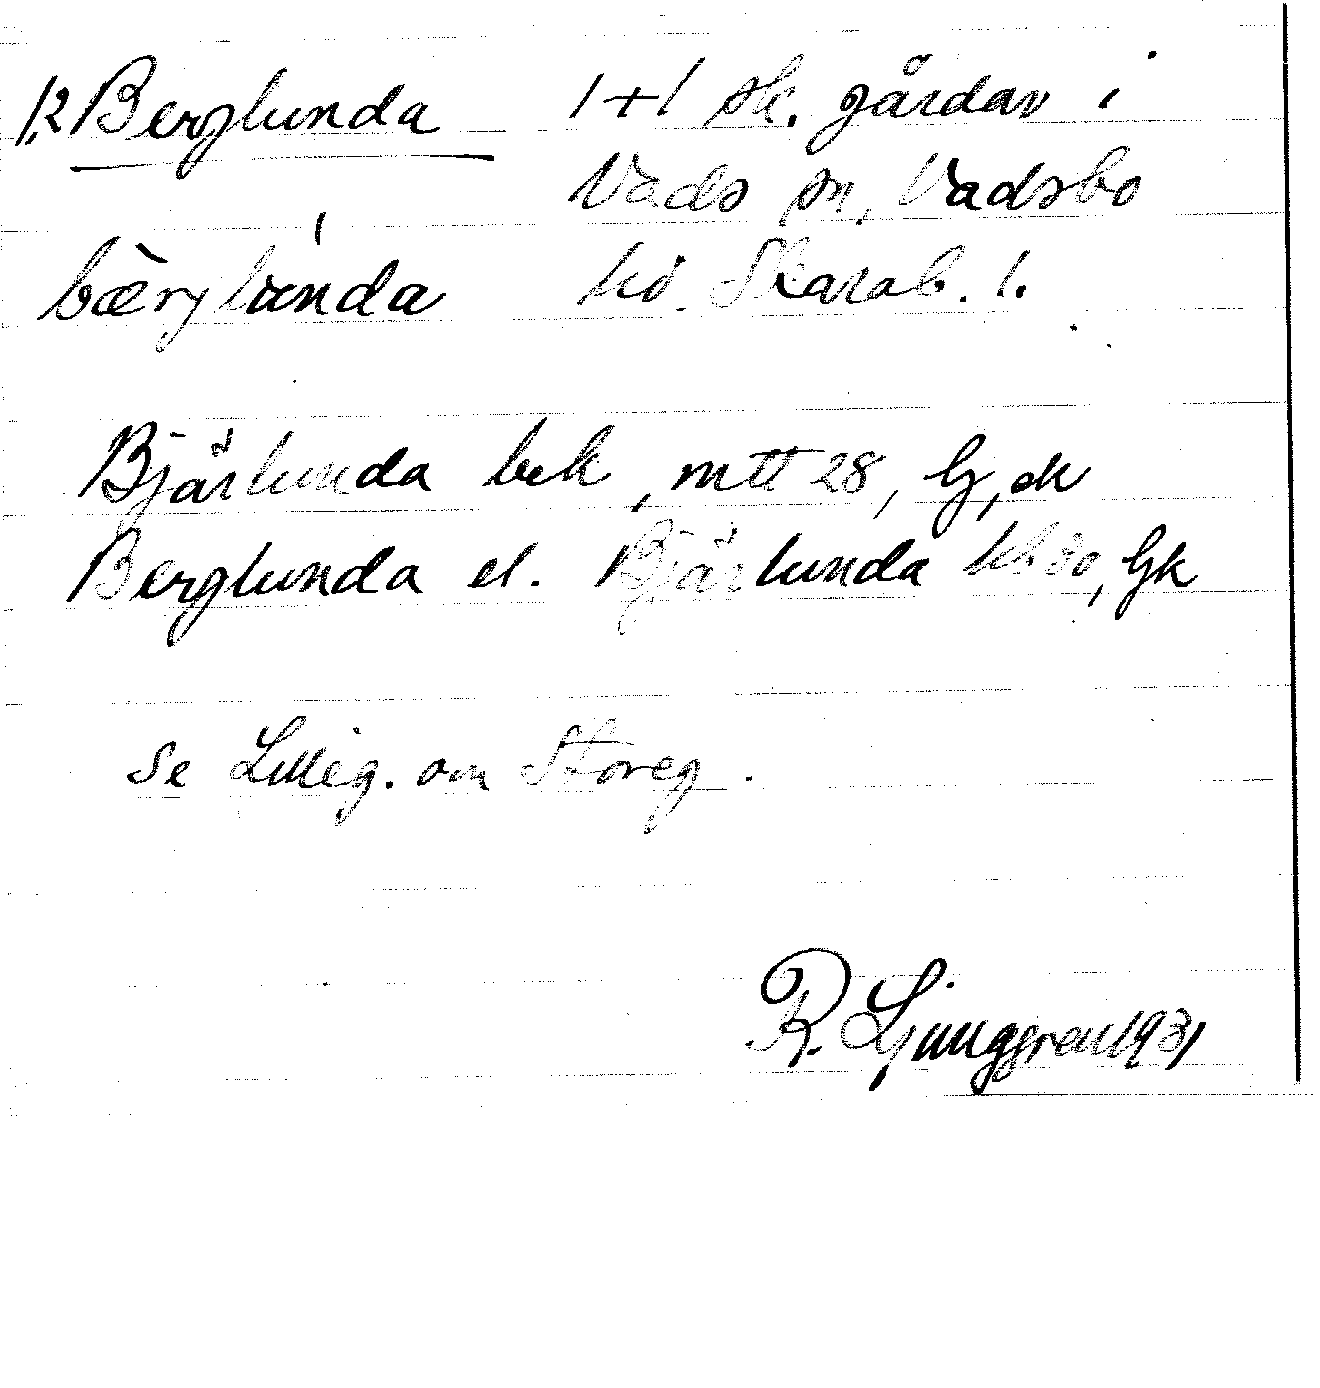 R Berglunda 1+1 sk. gårdar i
Vads sn, Vadsbo
bærglunda hd. Skarab. l.
Bjärlunda bek, mtt 28, G, ek
Berglunda el. Bjärlunda kh 30, Gk
Se Lilleg. om Storeg.
R. Ljunggren 1931